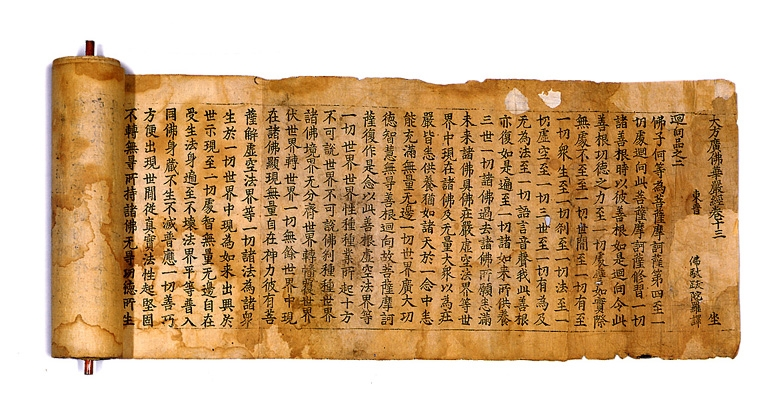 大方廣佛華嚴經卷十三 坐
東晉 佛馱跋陀羅譯
迴向品之二
佛子何等為菩薩摩訶薩第四至一
切處迴向此菩薩摩訶薩修習一切
諸善根時以彼善根如是迴向令此
善根功德之力至一切處譬如實際
無處不至至一切世間至一切有至
一切衆生至一切刹至一切法至一
切虛空至一切三世至一切有為及
无為法至一切語言音聲我此善根
亦復如是遍至一切諸如來所供養
三世一切諸佛過去諸佛所願悉滿
未來諸佛具佛莊嚴虛空法界等世
界中現在諸佛及无量大衆以為莊
嚴皆悉供養猶如諸天於一念中悉
能充滿無量无邊一切世界廣大功
德智慧無㝵善根迴向故菩薩摩訶
薩復作是念以此善根虛空法界等
一切世界世界性種種業所起十方
不可說世界不可說佛刹種種世界
諸佛境界无分齊世界轉世界
伏世界轉世界一切無餘世界中現
在諸佛顯現無量自在神力彼有菩
薩解虛空法界等一切諸法為諸
生於一切世界中現為如來出興於
世示現至一切處智無量无邊自在
受生法身遍至不壞法界平等普入
同佛身藏不生不滅普應一切善巧
方便出現世間從真實法性起堅固
不轉無㝵所持諸佛无㝵功德所生